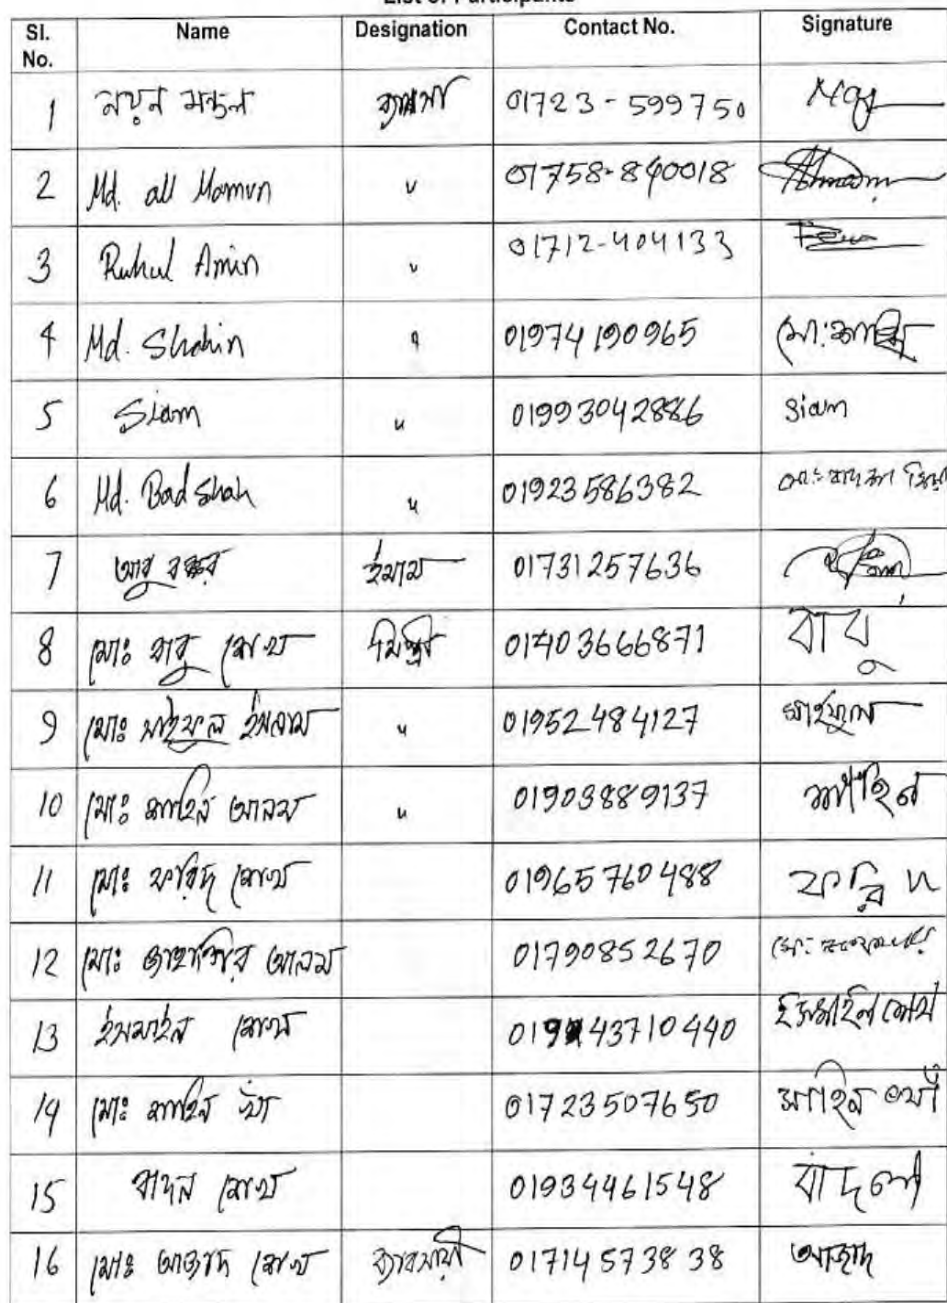 List of Participants
Sl. No. Name Designation Contact No. Signature
1 নয়ন মন্ডল 01723-599750
2 Md. all Mamun 〃 01758-840018
3 Ruhul Amin 〃 01712-404133
4 Md. Shahin 〃 01974190965
5 Siam 〃 01993042886 Siam
6 Md. Badshah 〃 01923586382
7 আবু বক্কর ইমাম 01731257636
8 মোঃ বাবু শেখ মিস্ত্রি 01403666871 বাবু
9 মোঃ সাইফুল ইসলাম 〃 01952484127 সাইফুল
10 মোঃ শাহিন আলম 〃 01903889137 শাহিন
11 মোঃ ফরিদ শেখ 01965760488 ফরিদ
12 মোঃ জাহাঙ্গির আলম 01790852670
13 ইসমাইল শেখ 43710440 ইসমাইল শেখ
14 মোঃ শাহিন খাঁ 01723507650 শাহিন খাঁ
15 বাদল শেখ 01934461548 বাদল
16 মোঃ আজাদ শেখ ব্যবসায়ী 01714573838 আজাদ